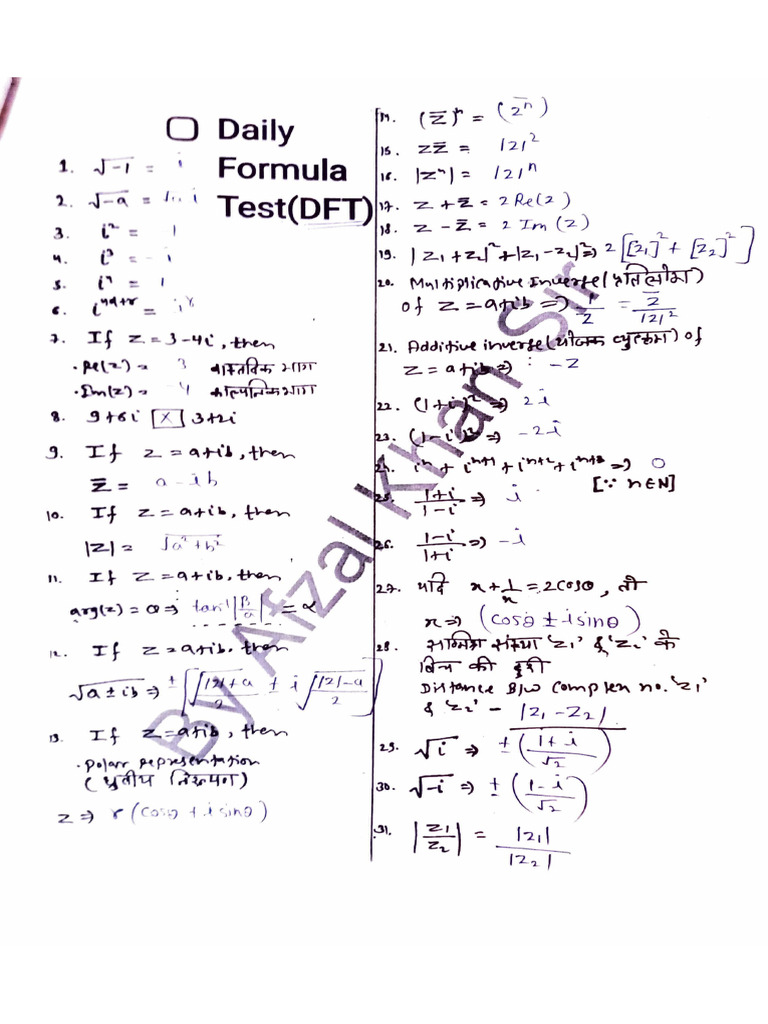 Daily
Formula
Test(DFT)
1. √-1 = i
2. √-a = i
3. i² = 1
4. i³ = -i
5. iⁿ = 1
6. i⁴ᵃ⁺ʳ = iʳ
7. If z = 3-4i, then
• Re(z) = 3 वास्तविक भाग
• Im(z) = -4 काल्पनिक भाग
8. 9+6i [x] 3+2i
9. If z = a+ib, then
z̅ = a-ib
10. If z = a+ib, then
|z| = √a²+b²
11. If z = a+ib, then
arg(z) = θ ⇒ tan⁻¹|β/a| = α
12. If z = a+ib, then
√a±ib ⇒ ±[√|z|+a/2 ± i√|z|-a/2]
13. If z = a+ib, then
• polar representation
(ध्रुवीय निरूपण)
z ⇒ r(cosθ + i sinθ)
14. (z̅)ⁿ = (z̅ⁿ)
15. zz̅ = |z|²
16. |zⁿ| = |z|ⁿ
17. z + z̅ = 2Re(z)
18. z - z̅ = 2 Im(z)
19. |z₁+z₂|²+|z₁-z₂|² ⇒ 2[[z₁]²+[z₂]²]
20. Multiplicative Inverse (प्रतिलोम)
of z = a+ib ⇒ 1/z = z̅/|z|²
21. Additive inverse (योजक व्युत्क्रम) of
z = a+ib ⇒ -z
22. (1+i)² ⇒ 2i
23. (1-i)² ⇒ -2i
24. iⁿ + iⁿ⁺¹ + iⁿ⁺² + iⁿ⁺³ ⇒ 0
[∵ n∈N]
25. 1+i/1-i ⇒ i
26. 1-i/1+i ⇒ -i
27. यदि x + 1/x = 2cosθ, तो
x ⇒ (cosθ ± i sinθ)
28. सम्मिश्र संख्या 'z₁' & 'z₂' के
बिच की दुरी
Distance B/w Complex no. 'z₁'
& 'z₂' - |z₁ - z₂|
29. √i ⇒ ±(1+i/√2)
30. √-i ⇒ ±(1-i/√2)
31. |z₁/z₂| = |z₁|/|z₂|
By Afzal Khan Sir